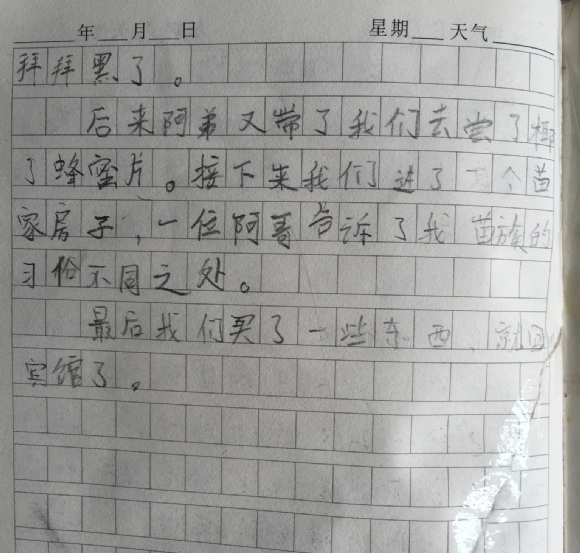 年 月 日 星期 天气
拜拜黑了。
后来阿弟又带了我们去尝了椰
了蜂蜜片。接下来我们进了一个苗
家房子,一位阿哥告诉了我苗族的
习俗不同之处。
最后我们买了一些东西,就回
宾馆了。